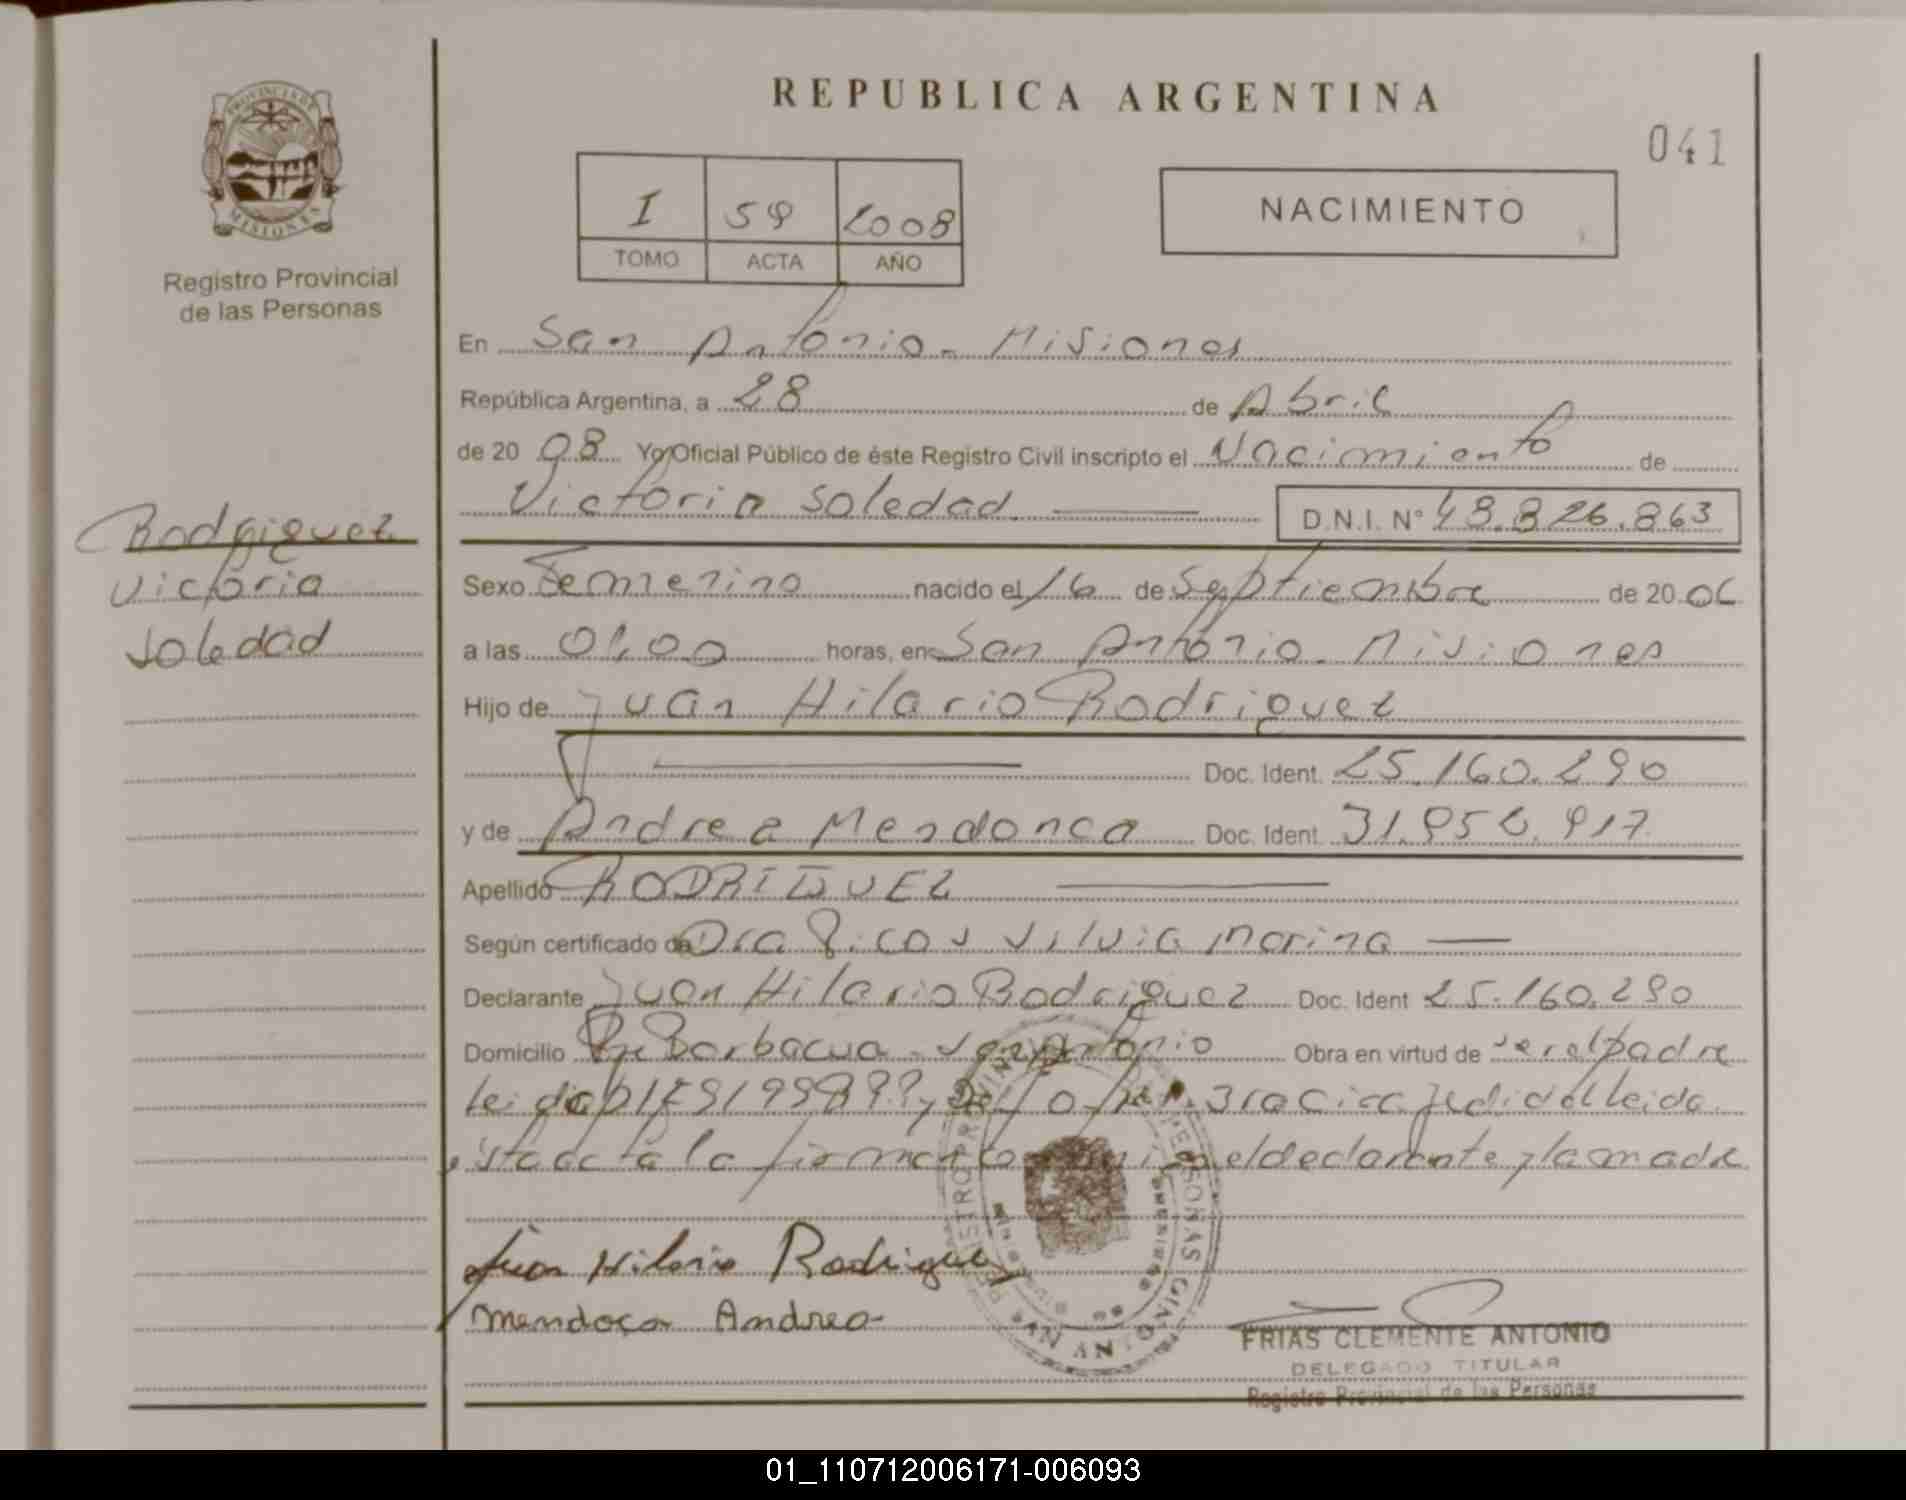 REPUBLICA ARGENTINA
041
PROVINCIA DE
MISIONES
Registro Provincial
de las Personas
I 59 2008
TOMO ACTA AÑO
NACIMIENTO
En San Antonio - Misiones
República Argentina, a 28 de Abril
de 20 08 Yo Oficial Público de éste Registro Civil inscripto el Nacimiento de
Victoria Soledad D.N.I. N° 48.826.863
Rodriguez
Victoria
Soledad
Sexo Femenino nacido el 16 de Septiembre de 20 06
a las 01,00 horas, en San Antonio - Misiones
Hijo de Juan Hilario Rodriguez
Doc. Ident. 25.160.290
y de Andrea Mendonca Doc. Ident.
Apellido RODRIGUEZ
Según certificado de Dra Silvia Marina
Declarante Juan Hilario Rodriguez Doc. Ident 25.160.290
Domicilio San Antonio Obra en virtud de ser el padre
leida
esta acta la firman el declarante y la madre
Juan Hilario Rodriguez
Mendoça Andrea
SAN ANTONIO
FRIAS CLEMENTE ANTONIO
DELEGADO TITULAR
Registro Provincial de las Personas
01_110712006171-006093